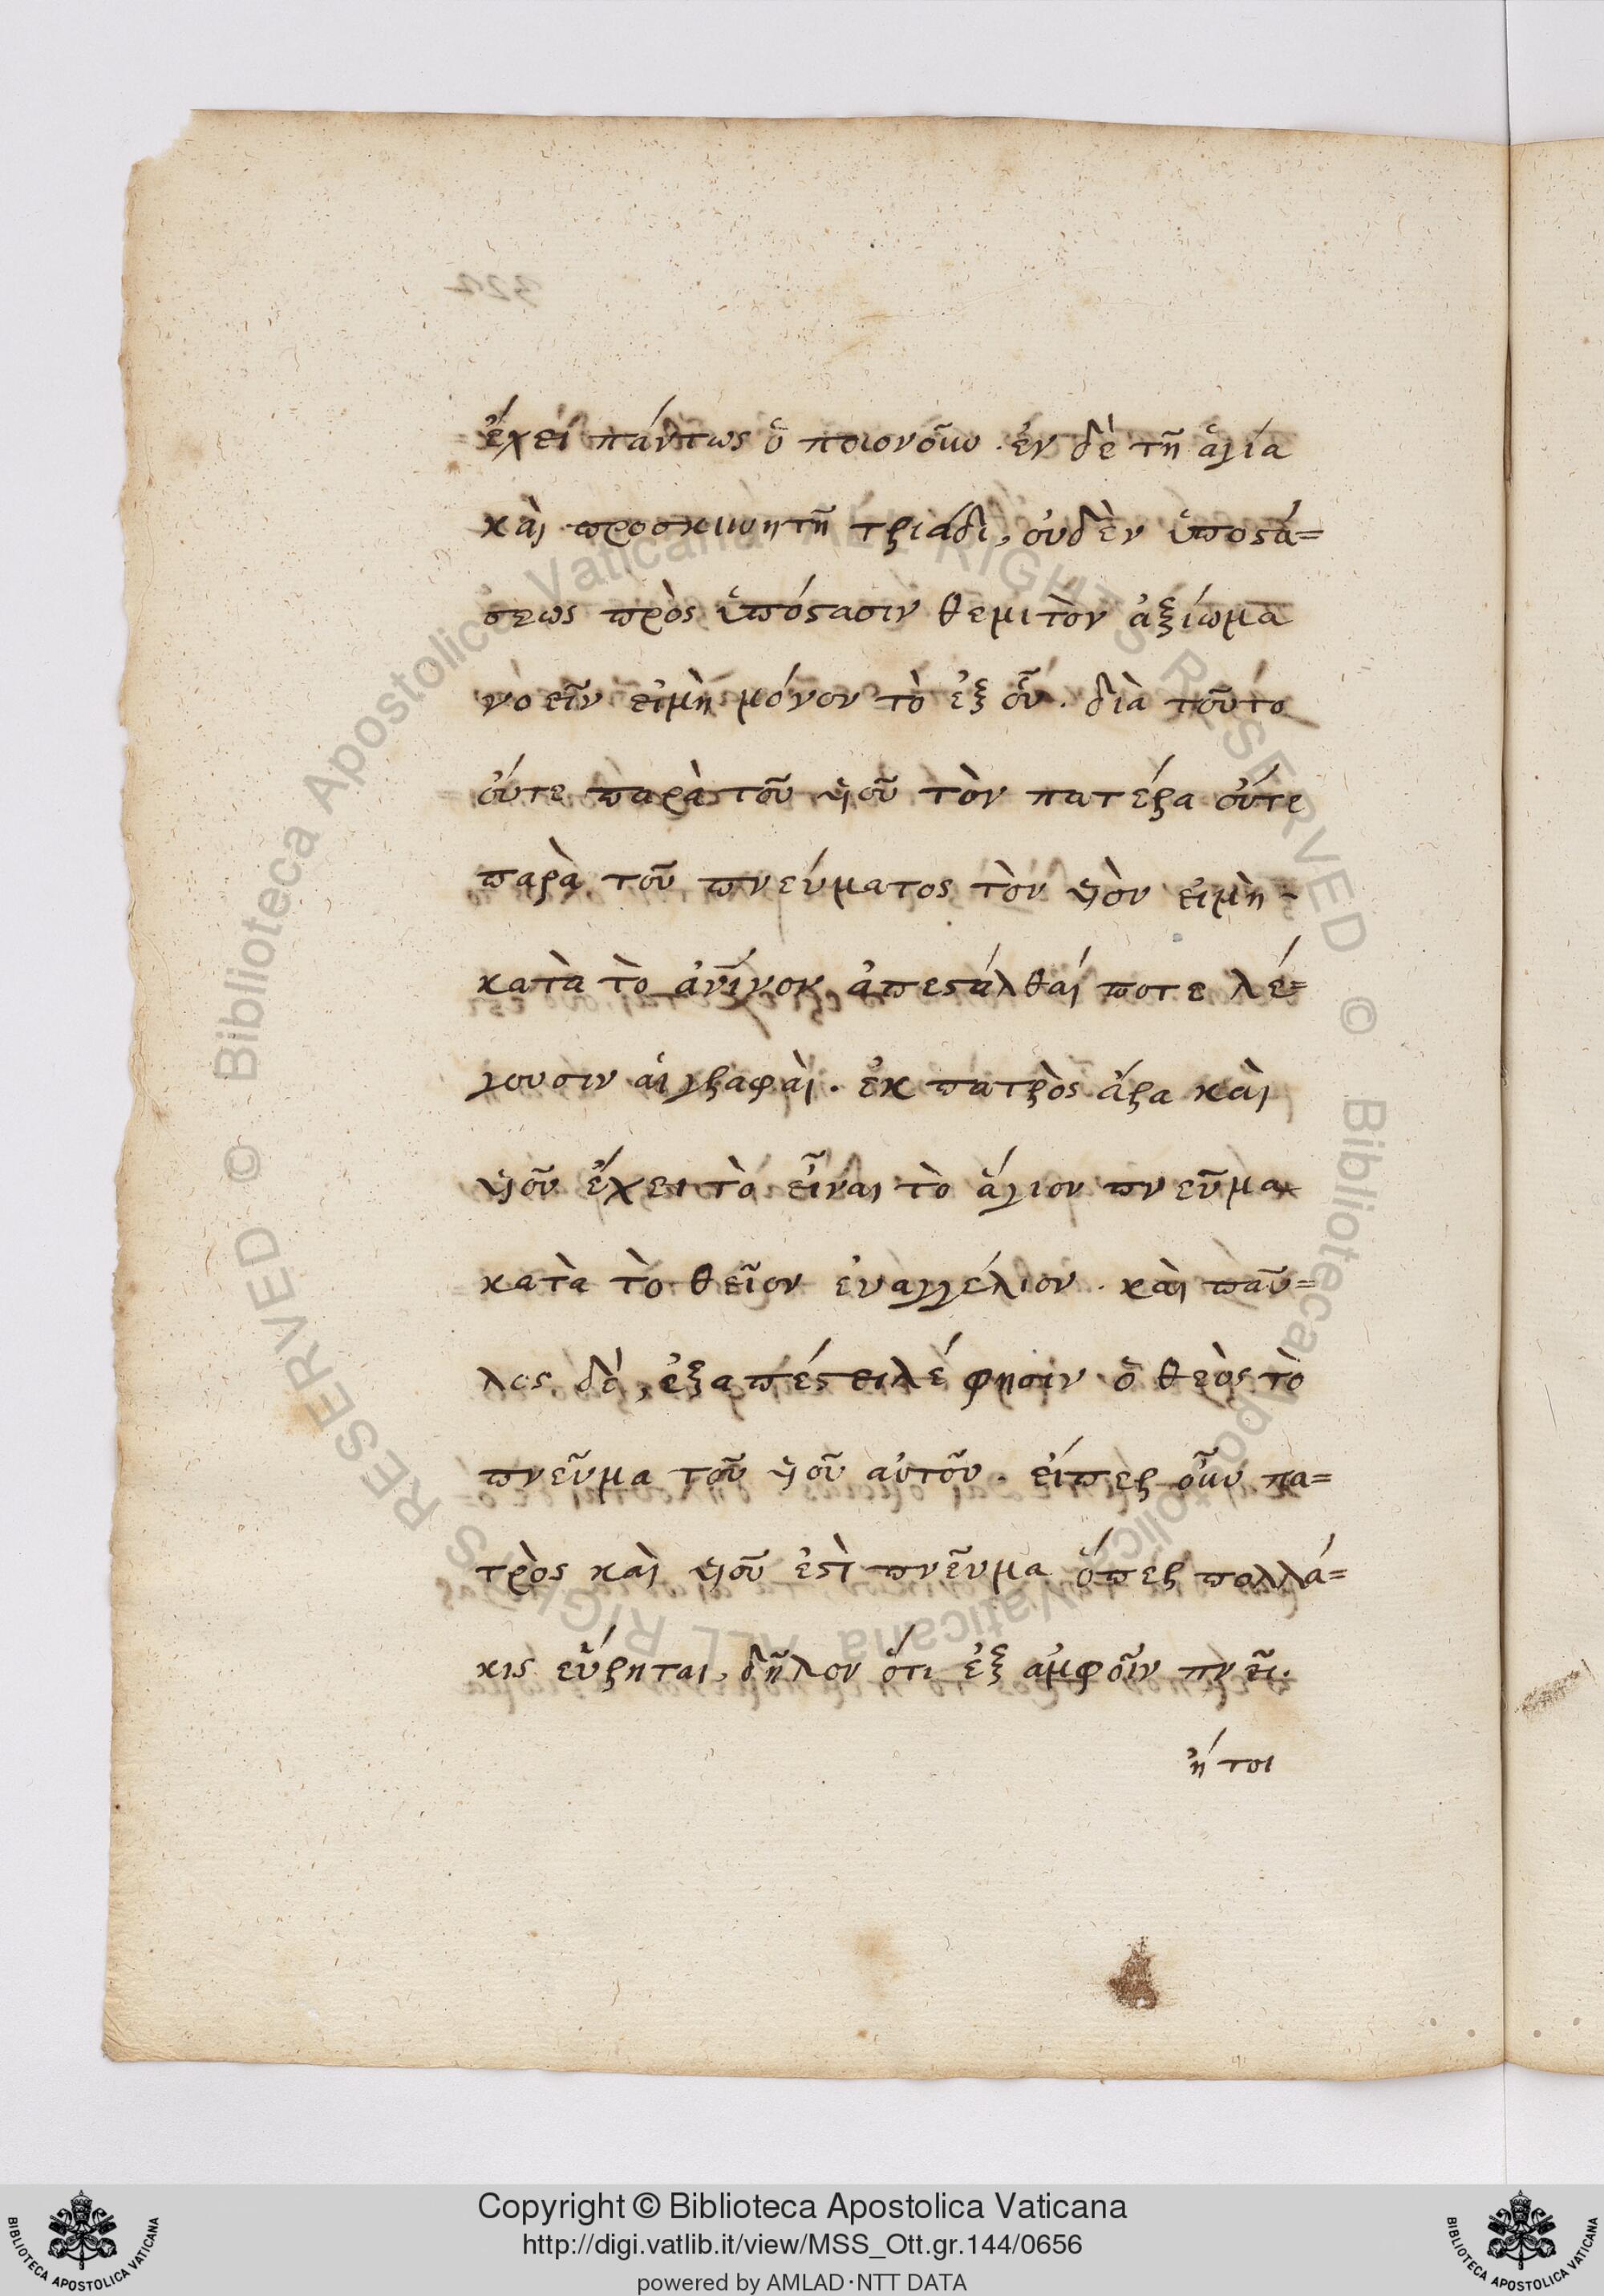 ἔχει πάντως ὁ ποιονοῦν. ἐν δὲ τῆ ἁγία
καὶ προσκυνητῆ τριάδι, οὐδὲν ὑποστά=
σεως πρὸς ὑπόστασιν θεμιτὸν ἀξίωμα
νοεῖν εἰμὴ μόνον τὸ ἐξ οὗ. διὰ τοῦτο
οὔτε παρὰ τοῦ υἱοῦ τὸν πατέρα οὔτε
παρὰ τοῦ πνεύματος τὸν υἱὸν εἰμὴ
κατὰ τὸ ἀνῖνον ἀπεστάλθαί ποτε λέ=
γουσιν αἱ γραφαὶ. ἐκ πατρὸς ἄρα καὶ
υἱοῦ ἔχει τὸ εἶναι τὸ ἅγιον πνεῦμα
κατὰ τὸ θεῖον εὐαγγέλιον. καὶ παῦ=
λος δὲ, ἐξαπέστειλέ φησιν ὁ θεὸς τὸ
πνεῦμα τοῦ υἱοῦ αὐτοῦ. εἴπερ οὖν πα=
τρὸς καὶ υἱοῦ ἐστὶ πνεῦμα ὅπερ πολλά=
κις εὕρηται, δῆλον ὅτι ἐξ ἀμφοῖν πνεῖ.
ἤτοι
Copyright © Biblioteca Apostolica Vaticana
http://digi.vatlib.it/view/MSS_Ott.gr.144/0656
powered by AMLAD·NTT DATA